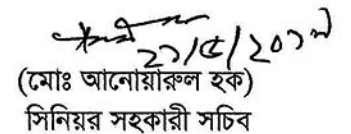 ২১/৫/২০১৭
(মোঃ আনোয়ারুল হক)
সিনিয়র সহকারী সচিব